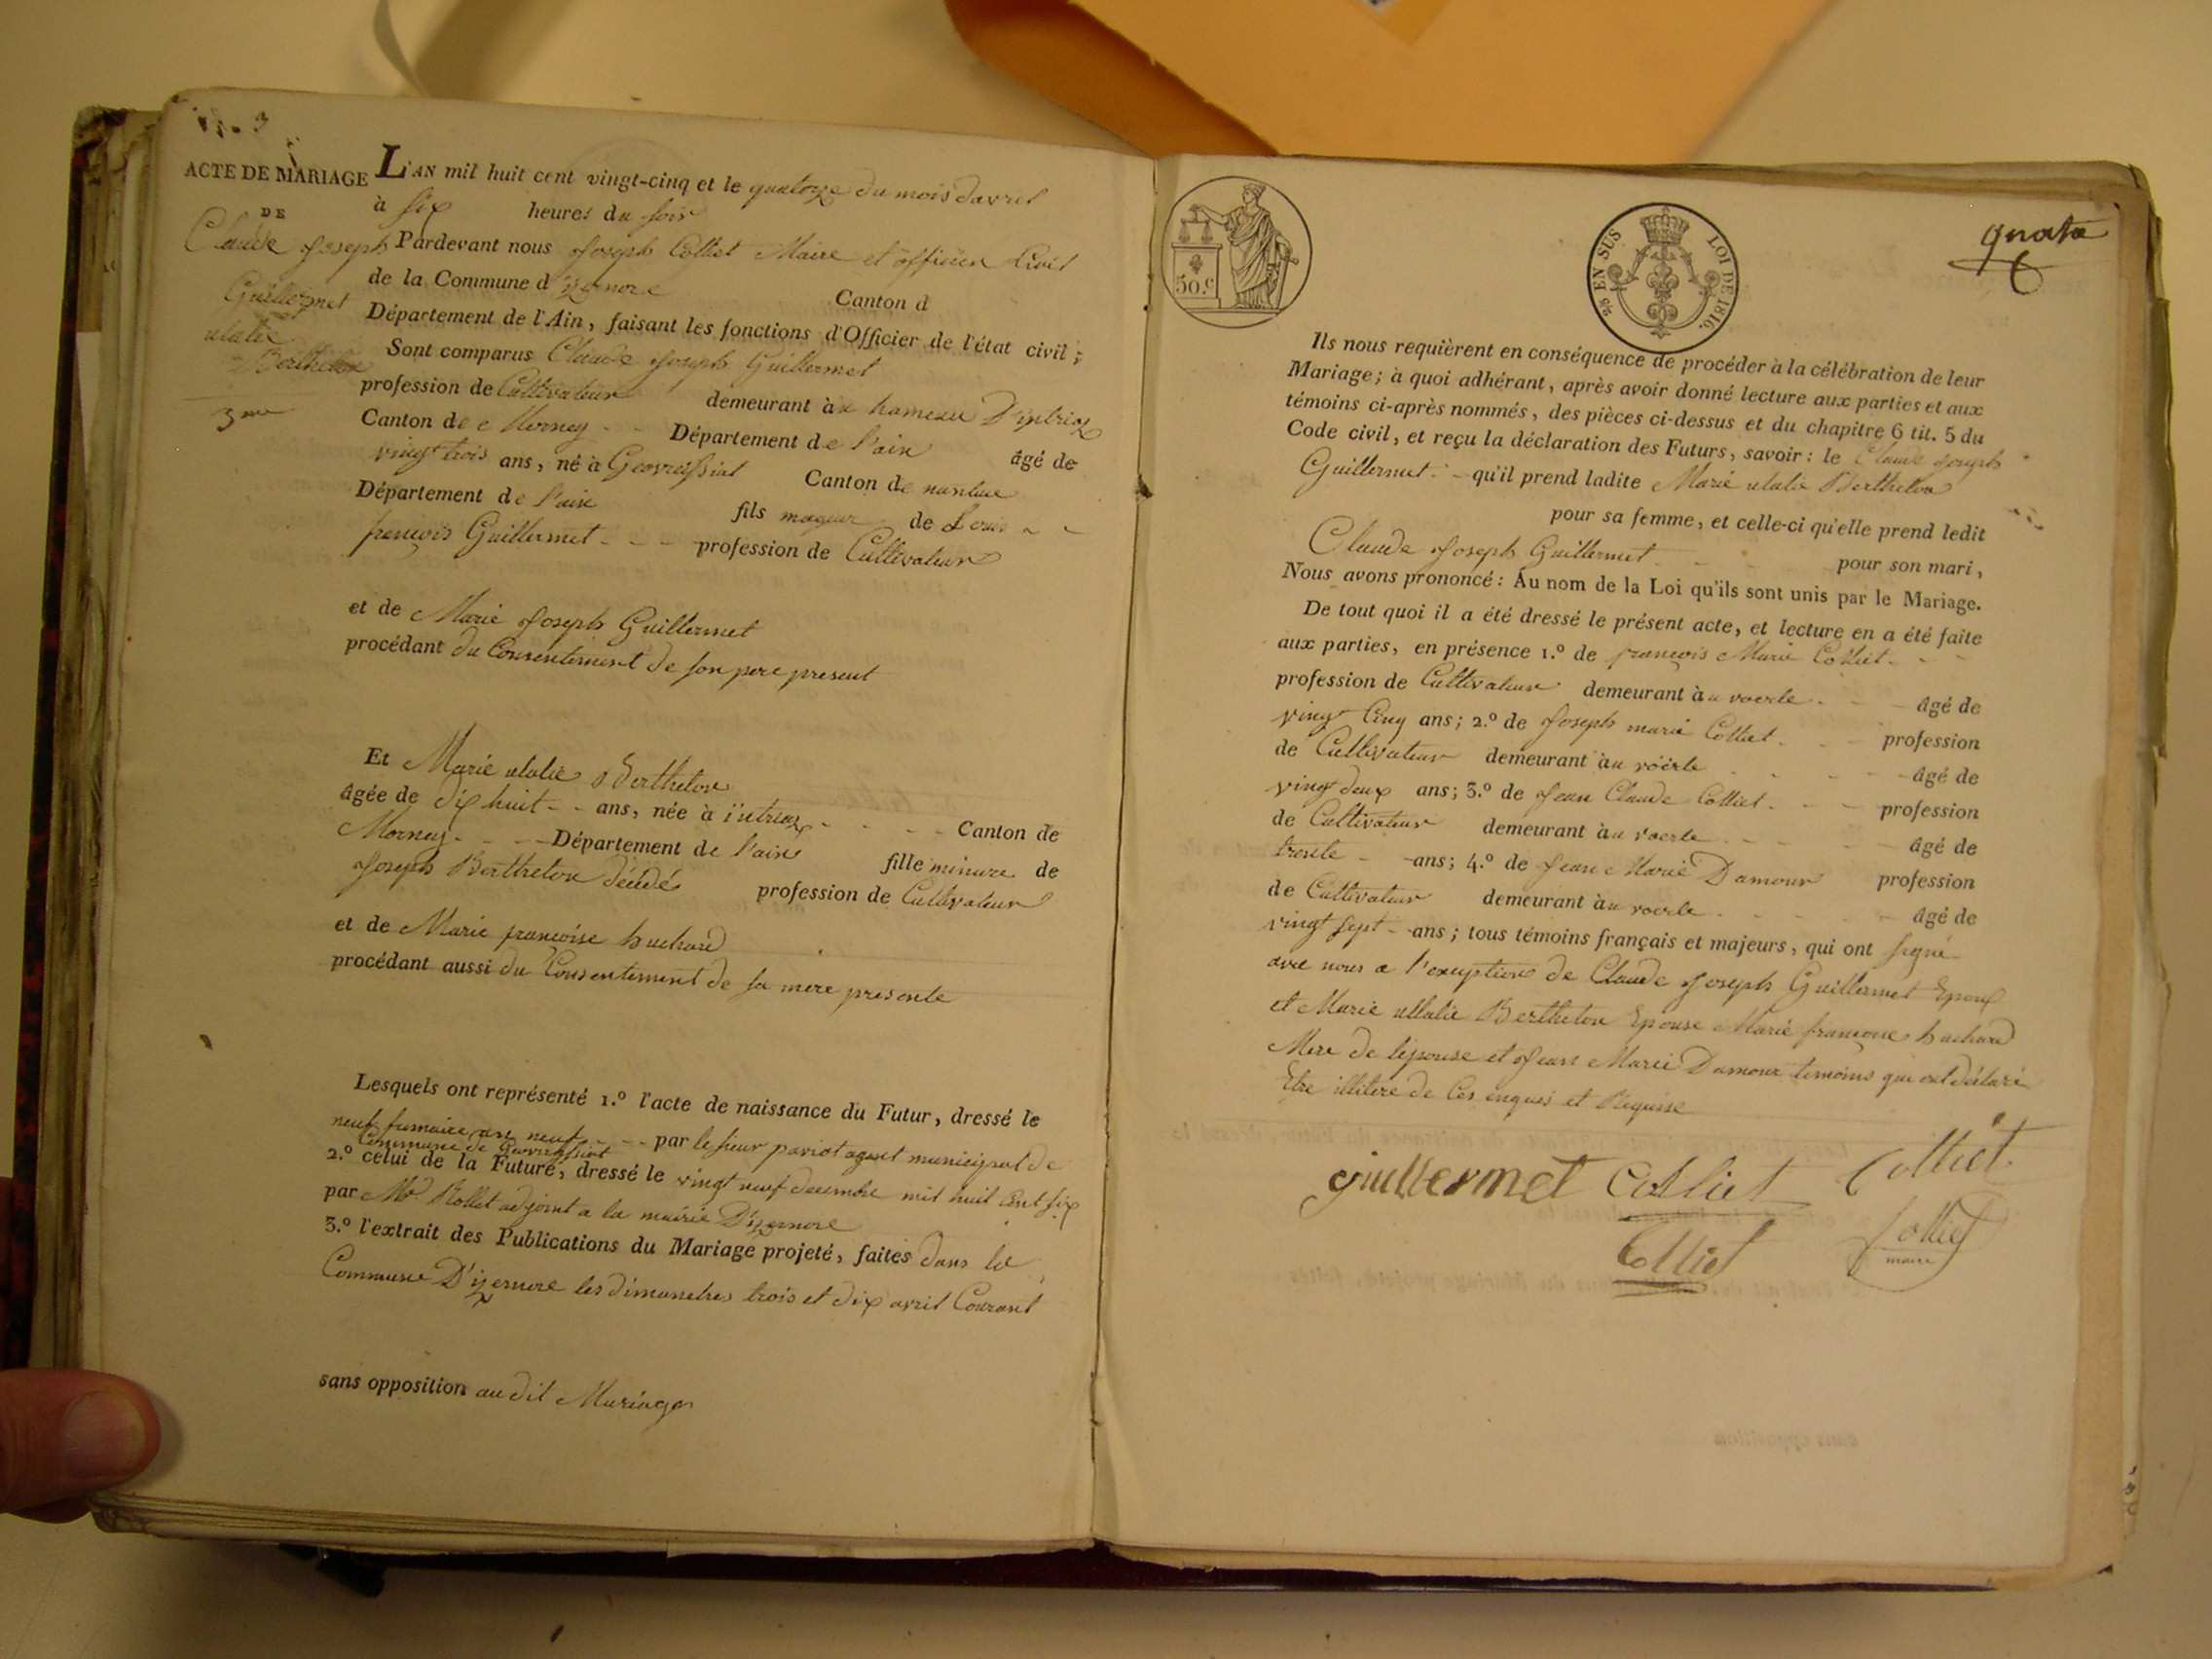 ACTE DE MARIAGE
DE
Claude Joseph
Guillermet
ulalie
Berthelon
3me
L'AN mil huit cent vingt-cinq et le quatorze du mois d'avril
à six heures du soir
Pardevant nous Joseph Colliet Maire et officier Civil
de la Commune d'izernore Canton d
Département de l'Ain, faisant les fonctions d'Officier de l'état civil;
Sont comparus Claude Joseph Guillermet
profession de Cultivateur demeurant au hameau D'intriaz
Canton de Mornay Département de l'ain âgé de
vingt trois ans, né à Geovressiat Canton de nantua
Département de l'ain fils majeur de Louis
francois Guillermet profession de Cultivateur
et de Marie Joseph Guillermet
procédant du Consentement de son pere present
Et Marie ulalie Berthelon
âgée de dix huit ans, née à intriaz Canton de
Mornay Département de l'ain fille minure de
Joseph Berthelon décédé profession de Cultivateur
et de Marie francoise huchard
procédant aussi du Consentement de sa mere presente
Lesquels ont représenté 1.º l'acte de naissance du Futur, dressé le
neuf frimaire an neuf par le sieur pariot agent municipal de
Commune de Geovressiat
2.º celui de la Future, dressé le vingt neuf decembre mil huit Cent six
par Mr Rollet adjoint a la mairie D'izernore
3.º l'extrait des Publications du Mariage projeté, faites dans la
Commune D'izernore les dimanches trois et dix avril Courant
sans opposition au dit Mariage
50.c
EN SUS LOI DE 1816.
Ils nous requièrent en conséquence de procéder à la célébration de leur
Mariage; à quoi adhérant, après avoir donné lecture aux parties et aux
témoins ci-après nommés, des pièces ci-dessus et du chapitre 6 tit. 5 du
Code civil, et reçu la déclaration des Futurs, savoir: le Claude Joseph
Guillermet qu'il prend ladite Marie ulalie Berthelon
pour sa femme, et celle-ci qu'elle prend ledit
Claude Joseph Guillermet pour son mari,
Nous avons prononcé: Au nom de la Loi qu'ils sont unis par le Mariage.
De tout quoi il a été dressé le présent acte, et lecture en a été faite
aux parties, en présence 1.º de francois Marie Colliet
profession de Cultivateur demeurant au voerle âgé de
vingt Cinq ans; 2.º de Joseph marie Colliet profession
de Cultivateur demeurant au voerle âgé de
vingt deux ans; 3.º de Jean Claude Colliet profession
de Cultivateur demeurant au voerle âgé de
trente ans; 4.º de Jean Marie Damour profession
de Cultivateur demeurant au voerle âgé de
vingt sept ans; tous témoins français et majeurs, qui ont signé
avec nous a l'exception de Claude Joseph Guillermet Epoux
et Marie ullalie Berthelon Epouse Marie francoise huchard
Mere de l'epouse et Jean Marie Damour temoins qui ont déclaré
Etre illitere de Ces enquis et Requise
Guillermet Colliet Colliet
Colliet Colliet
maire